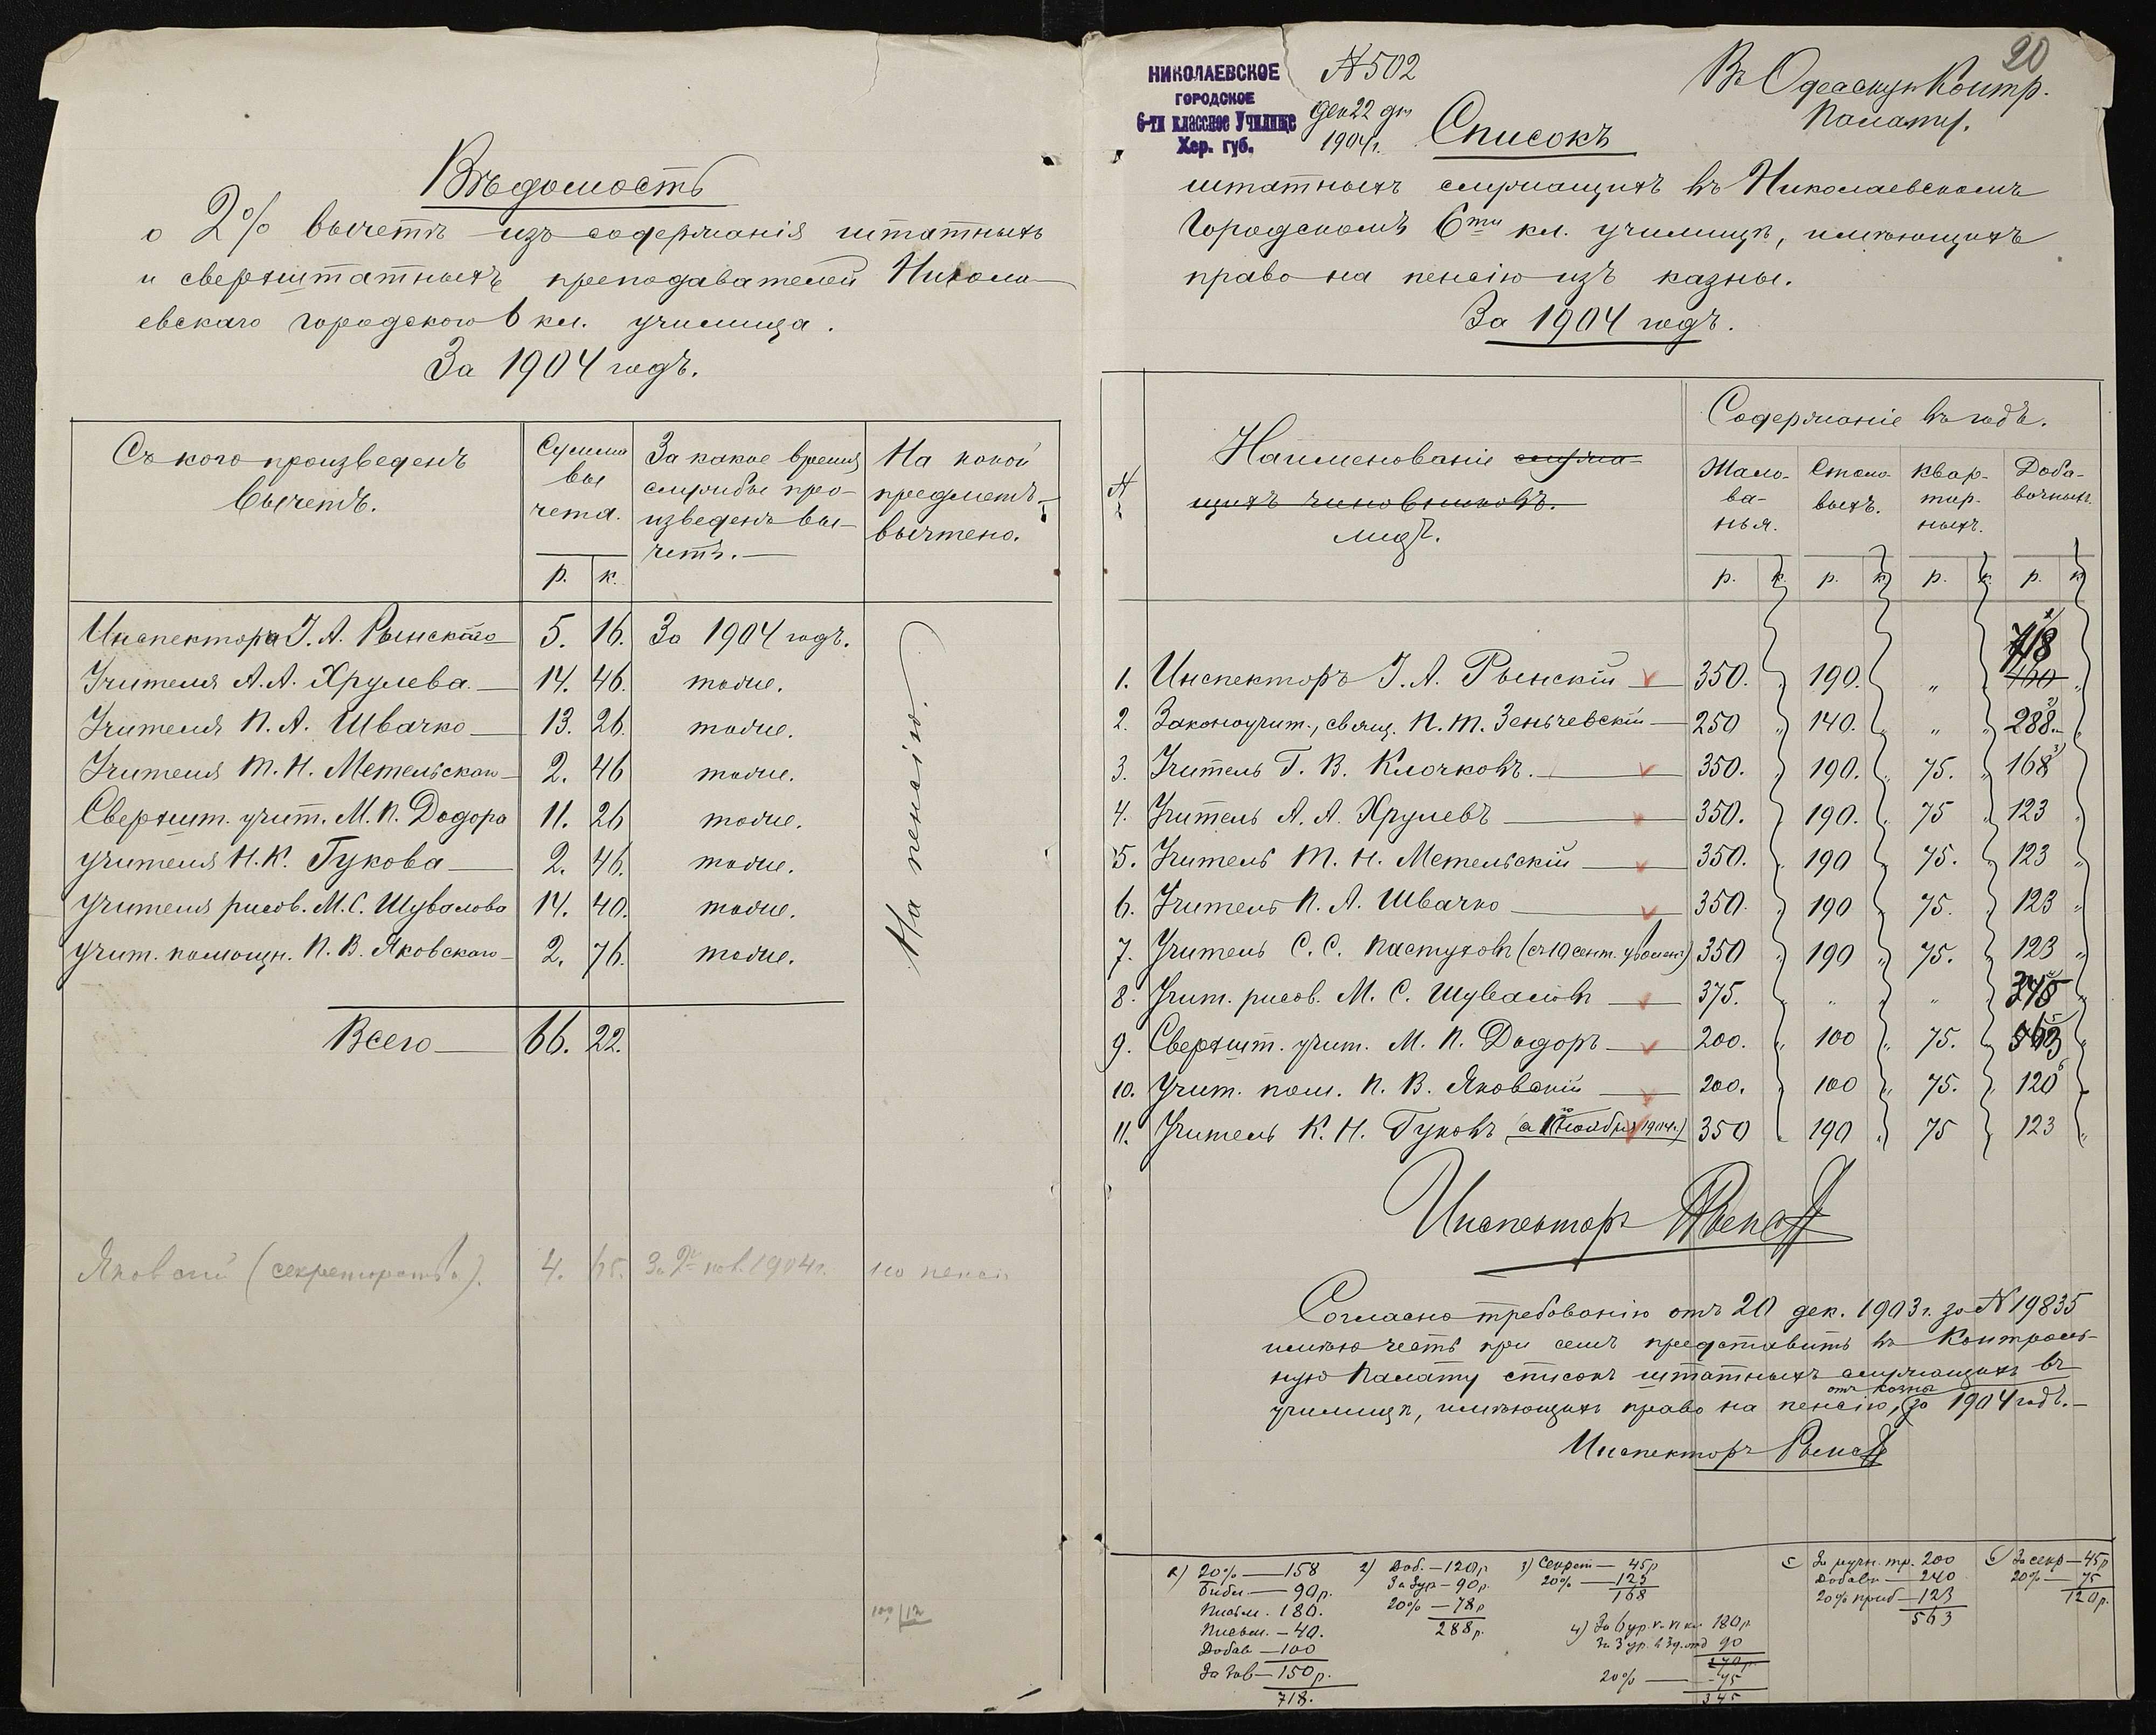 Вѣдомость
о 2% вычетѣ изъ содержанія штатныхъ
и сверхштатныхъ преподавателей Никола-
евскаго городского 6 кл. училища.
За 1904 годъ.
Съ кого произведенъ вычетъ. | Сумма вычета. р. к. | За какое время службы произведенъ вычетъ. | На какой предметъ вычтено.
Инспектора І. А. Рынскаго 5. 16. За 1904 годъ.
Учителя А. А. Хрулева. 14. 46. тоже.
Учителя П. А. Швачко 13. 26. тоже.
Учителя М. Н. Метельскаго 2. 46 тоже.
Сверхшт. учит. М. П. Додора 11. 26 тоже.
учителя Н. К. Гукова 2. 46. тоже.
учителя рисов. М. С. Шувалова 14. 40. тоже.
учит. помощн. П. В. Яковскаго 2. 76. тоже.
На пенсію.
Всего 66. 22.
Яковскій (секретарство). 4. За 2ю пол. 1904 г. на пенсію
20
НИКОЛАЕВСКОЕ
ГОРОДСКОЕ
6-ти классное Училище
Хер. губ.
№ 502
Дек 22 дня
1904 г.
Въ Одесскую Контр.
Палату.
Списокъ
штатныхъ служащихъ въ Николаевскомъ
Городскомъ 6ти кл. училищѣ, имѣющихъ
право на пенсію изъ казны.
За 1904 годъ.
№
Наименованіе служа-
щихъ чиновниковъ.
лицъ.
Содержаніе въ годъ.
Жало-
ва-
нья.
Столо-
выхъ.
Квар-
тир-
ныхъ.
Доба-
вочныхъ.
р. к. р. к. р. к. р. к.
1. Инспекторъ І. А. Рынскій 350. 190. „ 718
2. Законоучит., свящ. П. М. Зеньчевскій 250 140. „ 288
3. Учитель Г. В. Клочковъ. 350. 190. 75. 168
4. Учитель А. А. Хрулевъ 350. 190. 75 123
5. Учитель М. Н. Метельскій 350. 190 75. 123
6. Учитель П. А. Швачко 350. 190 75. 123
7. Учитель С. С. Пастуховъ (съ 10 сент. уволенъ) 350 190 75. 123
8. Учит. рисов. М. С. Шуваловъ 375. „ „ 345
9. Сверхшт. учит. М. П. Додоръ 200. 100 75. 563
10. Учит. пом. П. В. Яковскій 200. 100 75. 120
11. Учитель К. Н. Гуковъ ноября 1904 г.) 350 190 75 123
Инспекторъ
Согласно требованію отъ 20 дек. 1903 г. за № 19835
имѣю честь при семъ представить въ Контроль-
ную Палату списокъ штатныхъ служащихъ въ
училищѣ, имѣющихъ право на пенсію, отъ казны за 1904 годъ.
Инспекторъ
1) 20% — 158
Библ. — 90 р.
Письм. 180.
Письм. — 40.
Добав — 100
За зав — 150 р.
718.
2) Доб. — 120 р
За 3 ур — 90 р.
20% — 78 р
288 р.
3) Секрет — 45 р
20% — 123
168
4) За 6 ур. 180 р
За 3 ур. 90
270 р.
20% — 75
345
5) За ручн. тр. 200
Добавл — 240
20% приб — 123
563
6) За секр — 45 р
20% — 75
120 р.